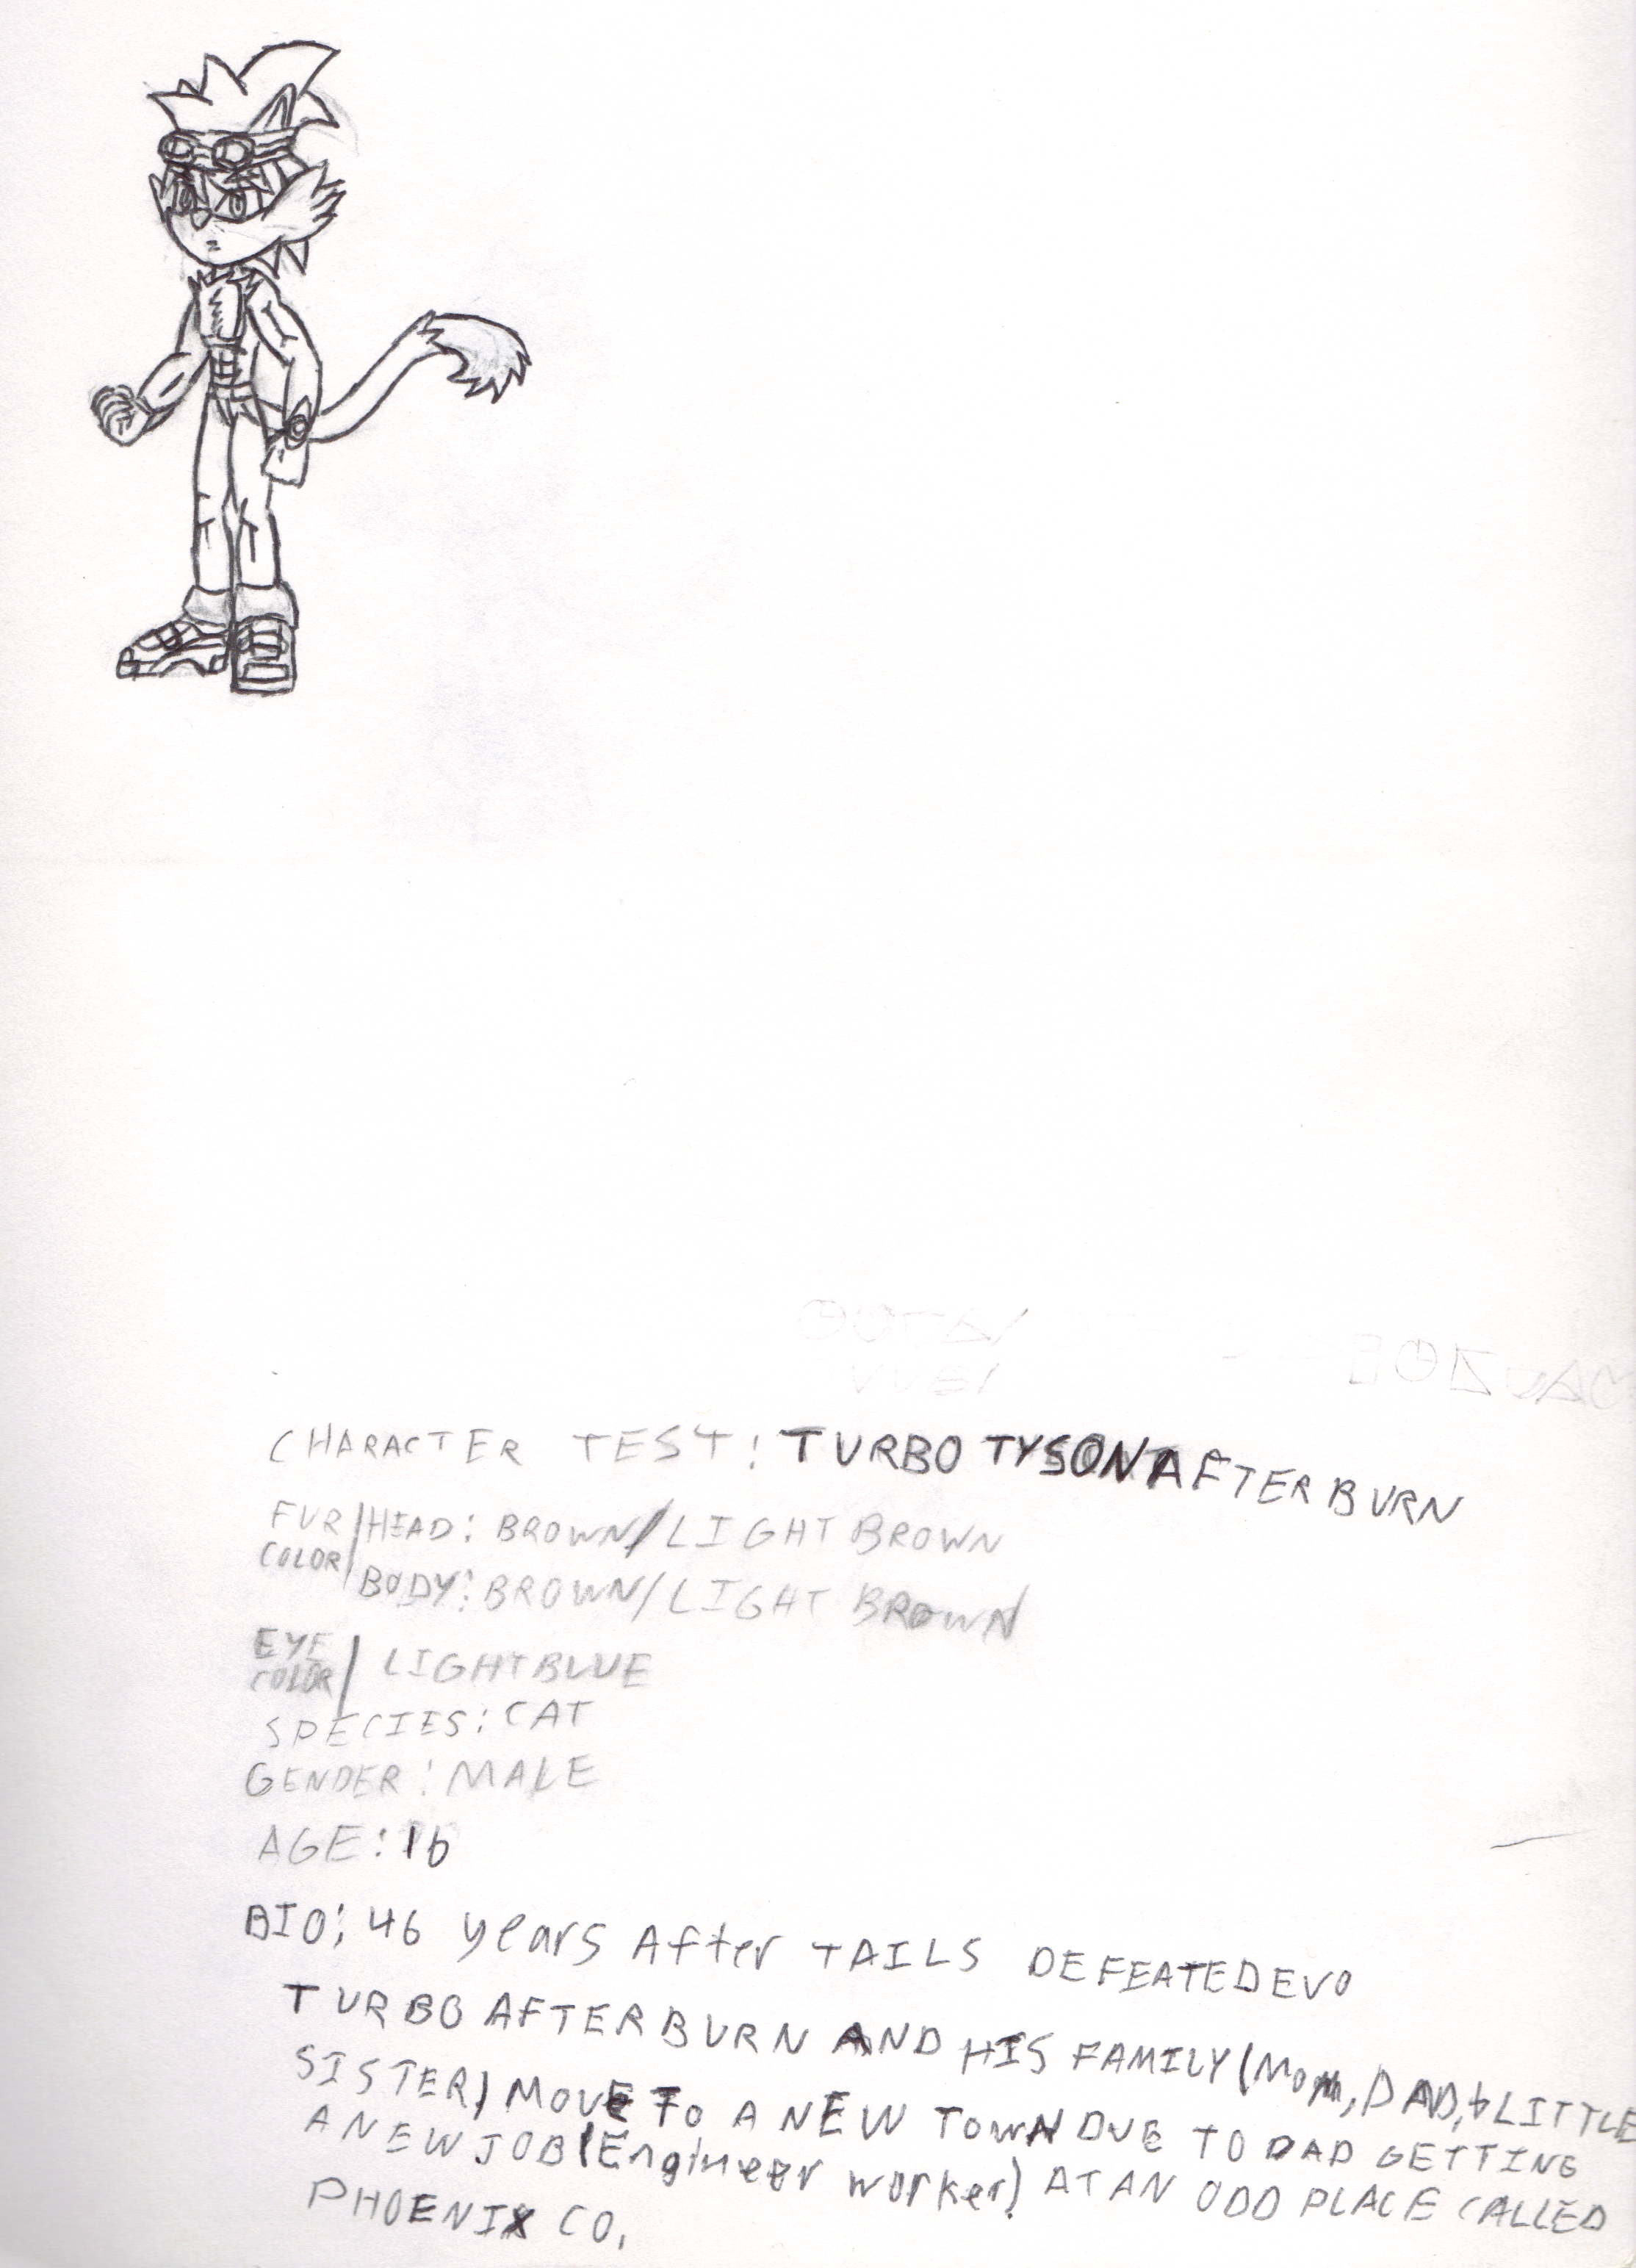 CHARACTER TEST: TURBO TYSON AFTERBURN
FUR COLOR/HEAD: BROWN/LIGHT BROWN
BODY: BROWN/LIGHT BROWN
EYE COLOR/ LIGHT BLUE
SPECIES: CAT
GENDER: MALE
AGE: 16
BIO: 46 years After TAILS DEFEATED EVO
TURBO AFTERBURN AND HIS FAMILY (Mom, DAD, & LITTLE
SISTER) MOVE To A NEW TowN DUE TO DAD GETTING
A NEW JOB (Engineer worker) AT AN ODD PLACE CALLED
PHOENIX CO.